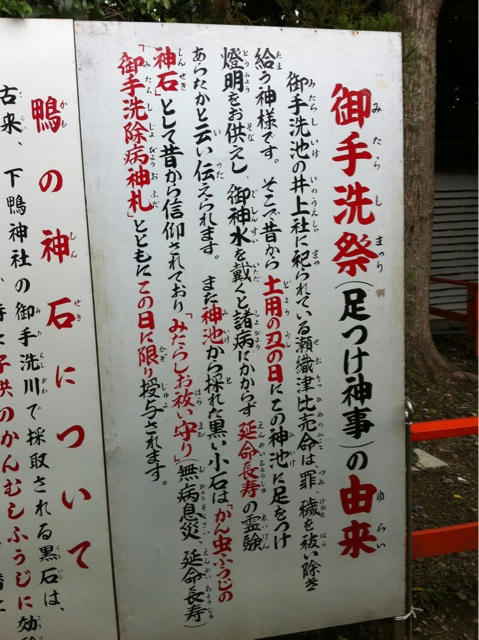 御手洗祭(足つけ神事)の由来
御手洗池の井上社に祀られている瀬織津比売命は、罪、穢を祓い除き
給う神様です。そこで昔から土用の丑の日にこの神池に足をつけ
燈明をお供えし、御神水を戴くと諸病にかからず延命長寿の霊験
あらたかと云い伝えられます。また神池から採れた黒い小石は「かん虫ふうじの
神石」として昔から信仰されており「みたらしお祓い守り」(無病息災 延命長寿)
「御手洗除病神札」とともにこの日に限り授与されます。
鴨の神石について
古来、下鴨神社の御手洗川で採取される黒石は、
子供のかんむしふうじに効